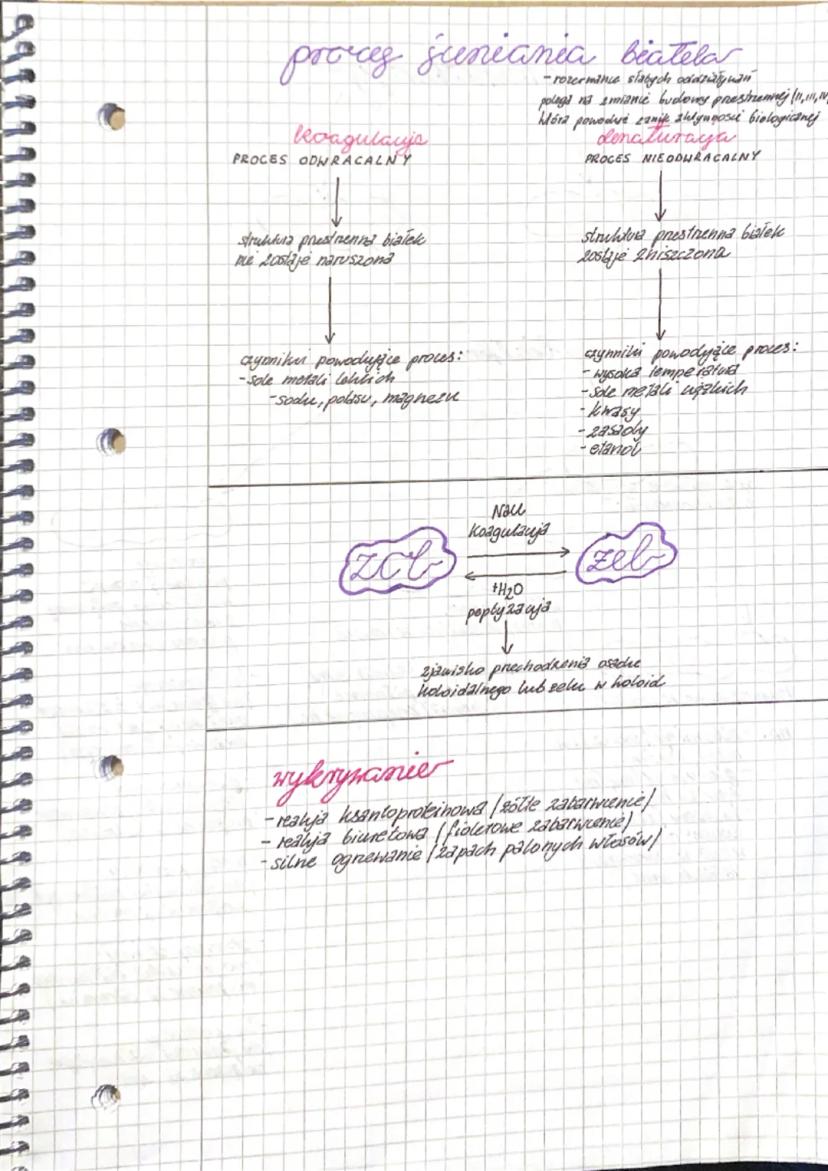 proces ścinania białka
- rozerwanie słabych oddziaływań
polega na zmianie budowy przestrzennej (II, III, IV
która powoduje zanik aktywności biologicznej
koagulacja
PROCES ODWRACALNY
struktura przestrzenna białek
nie zostaje naruszona
czynniki powodujące proces:
- sole metali lekkich
- sodu, potasu, magnezu
denaturacja
PROCES NIEODWRACALNY
struktura przestrzenna białek
zostaje zniszczona
czynniki powodujące proces:
- wysoka temperatura
- sole metali ciężkich
- kwasy
- zasady
- etanol
NaCl
koagulacja
zol
żel
+H₂O
peptyzacja
zjawisko przechodzenia osadu
koloidalnego lub żelu w koloid
wykrywanie
- reakcja ksantoproteinowa (żółte zabarwienie)
- reakcja biuretowa (fioletowe zabarwienie)
- silne ogrzewanie (zapach palonych włosów)